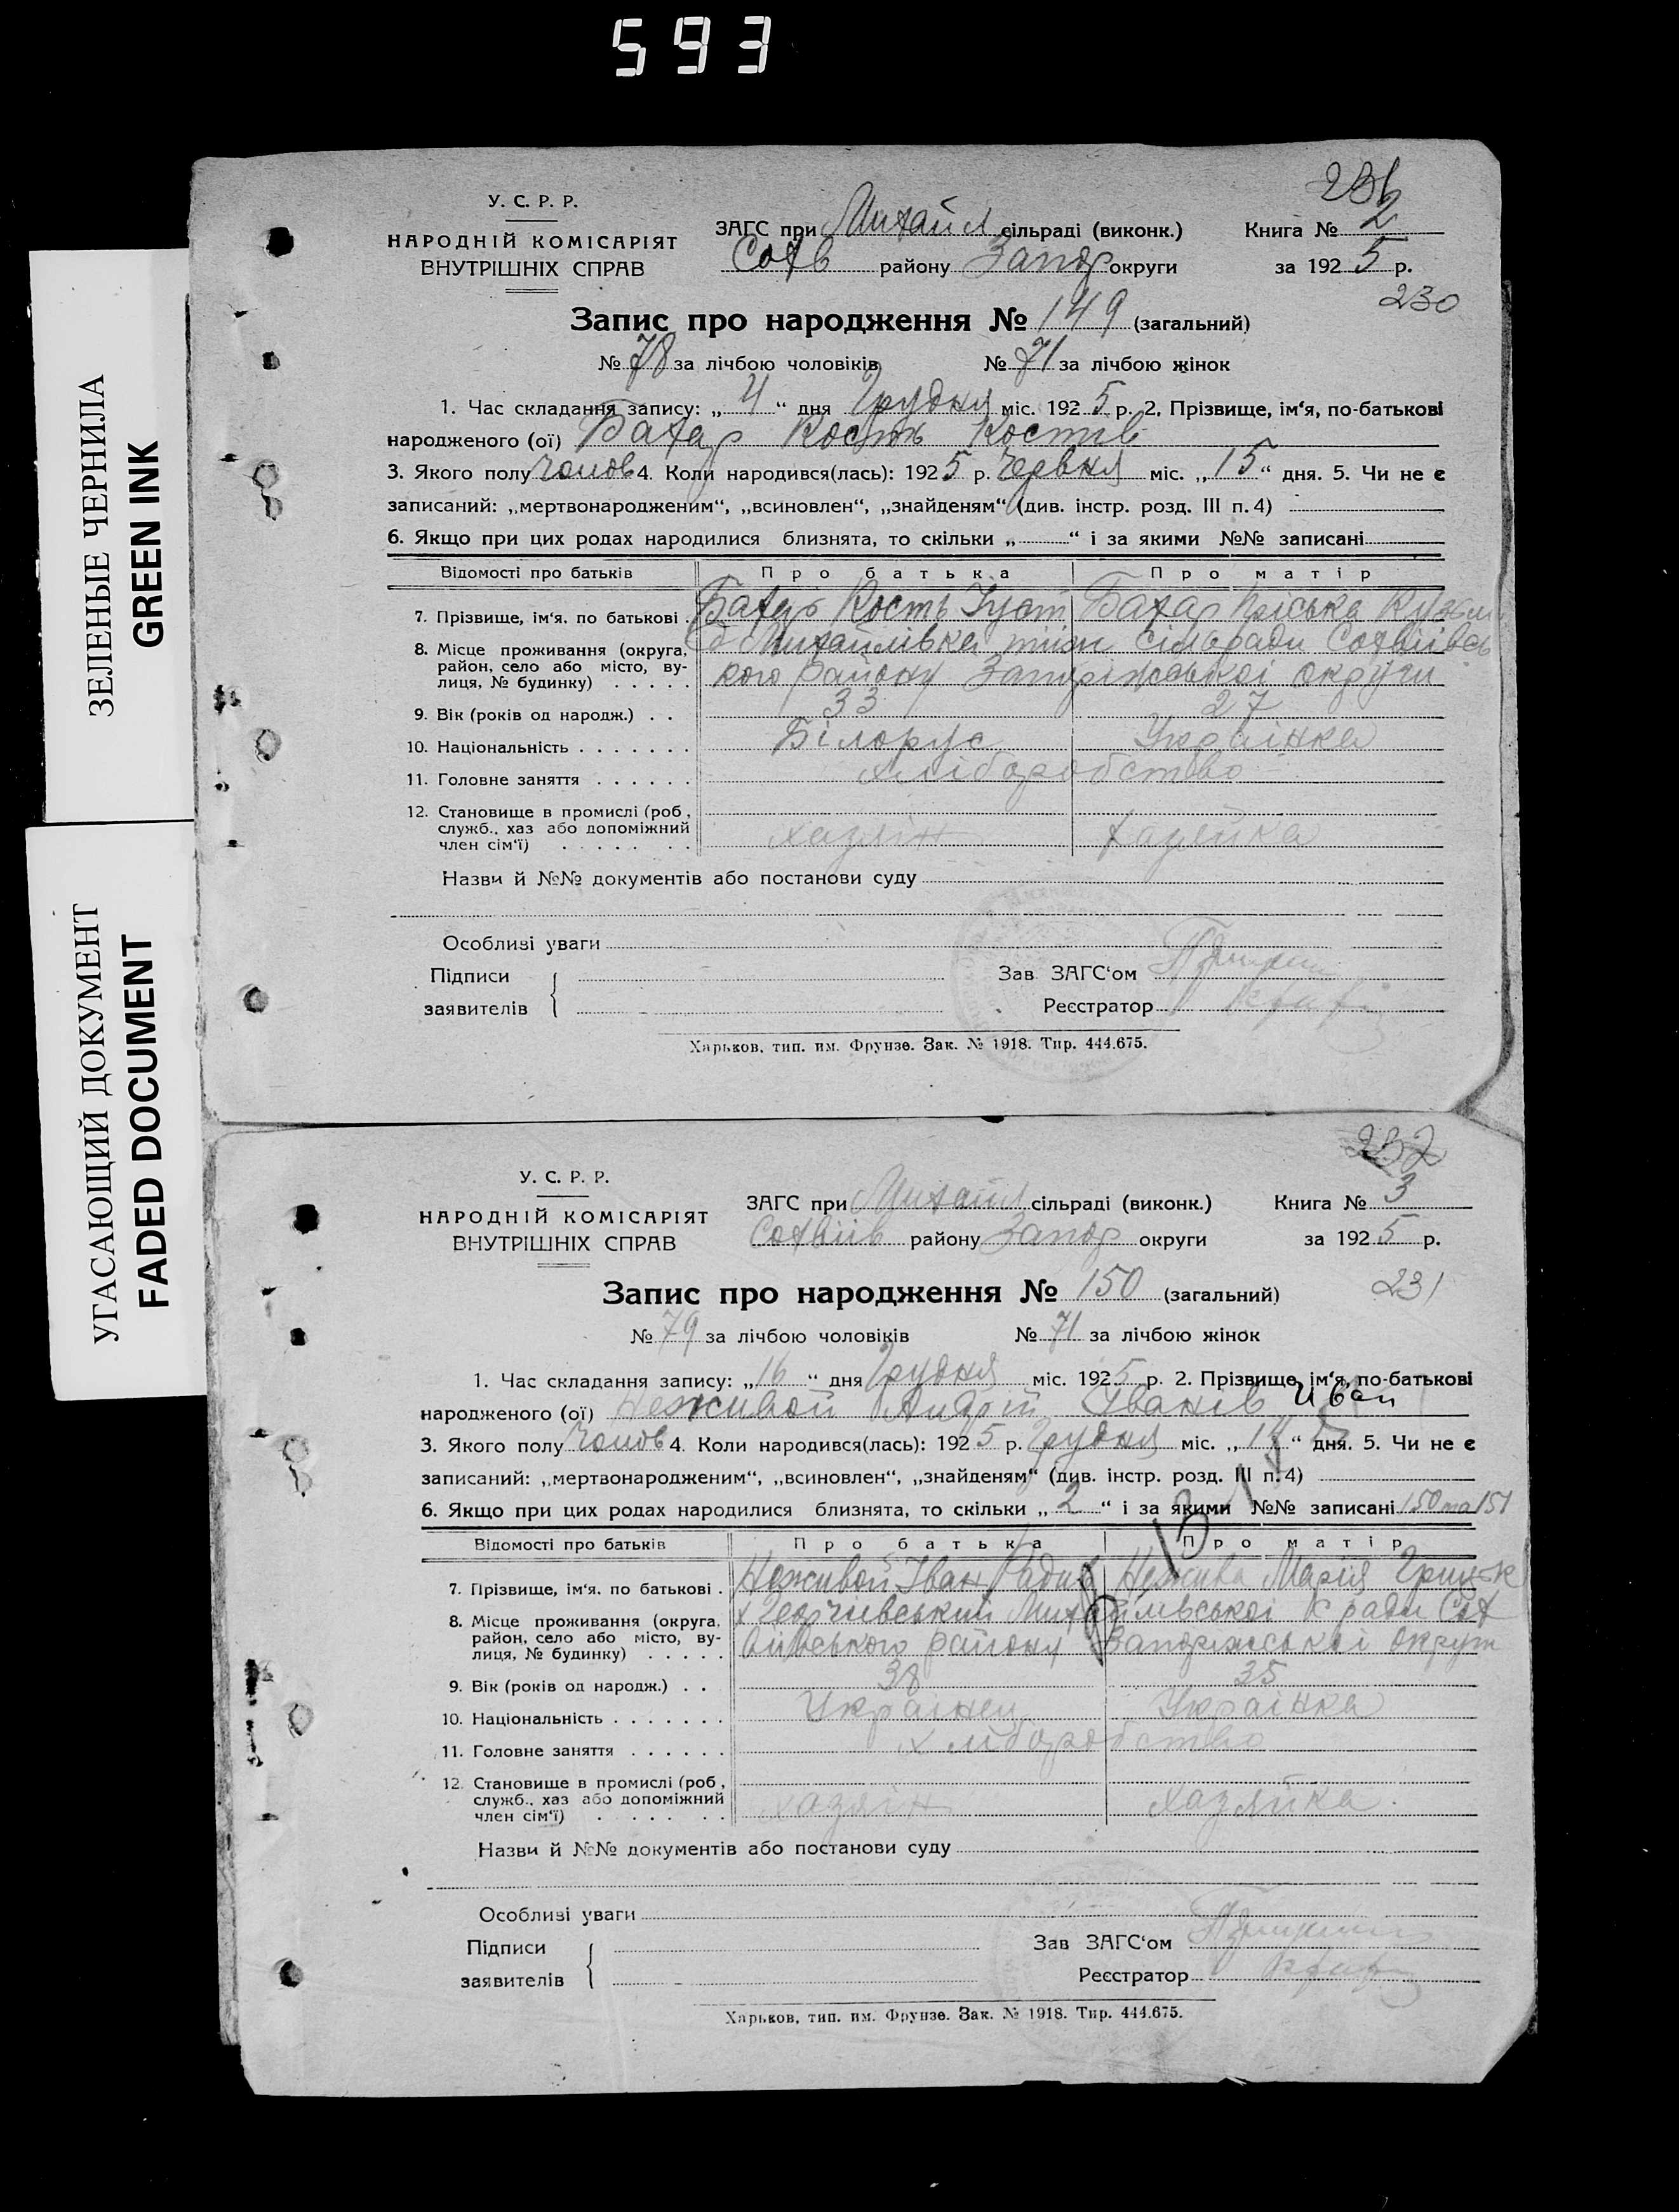 593
ЗЕЛЕНЫЕ ЧЕРНИЛА
GREEN INK
УГАСАЮЩИЙ ДОКУМЕНТ
FADED DOCUMENT
236
У. С. Р. Р.
НАРОДНІЙ КОМІСАРІЯТ
ВНУТРІШНІХ СПРАВ
ЗАГС при Михайл сільраді (виконк.) Книга № 2
Софв району Запор округи за 1925 р.
230
Запис про народження № 149 (загальний)
№ 78 за лічбою чоловіків № 71 за лічбою жінок
1. Час складання запису: „4“ дня Грудня міс. 1925 р. 2. Прізвище, ім‘я, по-батькові
народженого (ої) Бахар Кость Костів
3. Якого полу чолов 4. Коли народився(лась): 1925 р. Червня міс. „15“ дня. 5. Чи не є
записаний: „мертвонародженим“, „всиновлен“, „знайденям“ (див. інстр. розд. III п. 4)
6. Якщо при цих родах народилися близнята, то скільки „ “ і за якими №№ записані
Відомості про батьків Про батька Про матір
7. Прізвище, ім‘я, по батькові . Бахар Кость Бахар Пріська
8. Місце проживання (округа, Михайлівка тієї сільради Софіївсь
район, село або місто, ву-
лиця, № будинку) . . . . . кого району Запоріжської округи
9. Вік (років од народж.) . . 33 27
10. Національність . . . . . . . Білорус Українка
11. Головне заняття . . . . . . хліборобство
12. Становище в промислі (роб,
служб., хаз або допоміжний
член сім‘ї) . . . . . . . хазяїн хазяйка
Назви й №№ документів або постанови суду
Особливі уваги
Підписи Зав ЗАГС‘ом
заявителів Реєстратор
Харьков, тип. им. Фрунзе. Зак. № 1918. Тир. 444.675.
232
У. С. Р. Р.
НАРОДНІЙ КОМІСАРІЯТ
ВНУТРІШНІХ СПРАВ
ЗАГС при Михайл сільраді (виконк.) Книга № 3
Софіїв району Запор округи за 1925 р.
231
Запис про народження № 150 (загальний)
№ 79 за лічбою чоловіків № 71 за лічбою жінок
1. Час складання запису: „16“ дня Грудня міс. 1925 р. 2. Прізвище, ім‘я, по-батькові
народженого (ої) Неживой Андрій Іванів Иван
3. Якого полу чолов 4. Коли народився(лась): 1925 р. Грудня міс. „ “ дня. 5. Чи не є
записаний: „мертвонародженим“, „всиновлен“, „знайденям“ (див. інстр. розд. III п. 4)
6. Якщо при цих родах народилися близнята, то скільки „2“ і за якими №№ записані 150 та 151
Відомості про батьків Про батька Про матір
7. Прізвище, ім‘я, по батькові . Неживой Іван Нежива Марія
8. Місце проживання (округа, Михайлівської с ради Соф
район, село або місто, ву-
лиця, № будинку) . . . . . іївського району Запоріжської округи
9. Вік (років од народж.) . . 38 35
10. Національність . . . . . . . Українец Українка
11. Головне заняття . . . . . . хліборобство
12. Становище в промислі (роб,
служб., хаз або допоміжний
член сім‘ї) . . . . . . . хазяїн хазяйка
Назви й №№ документів або постанови суду
Особливі уваги
Підписи Зав ЗАГС‘ом
заявителів Реєстратор
Харьков, тип. им. Фрунзе. Зак. № 1918. Тир. 444.675.